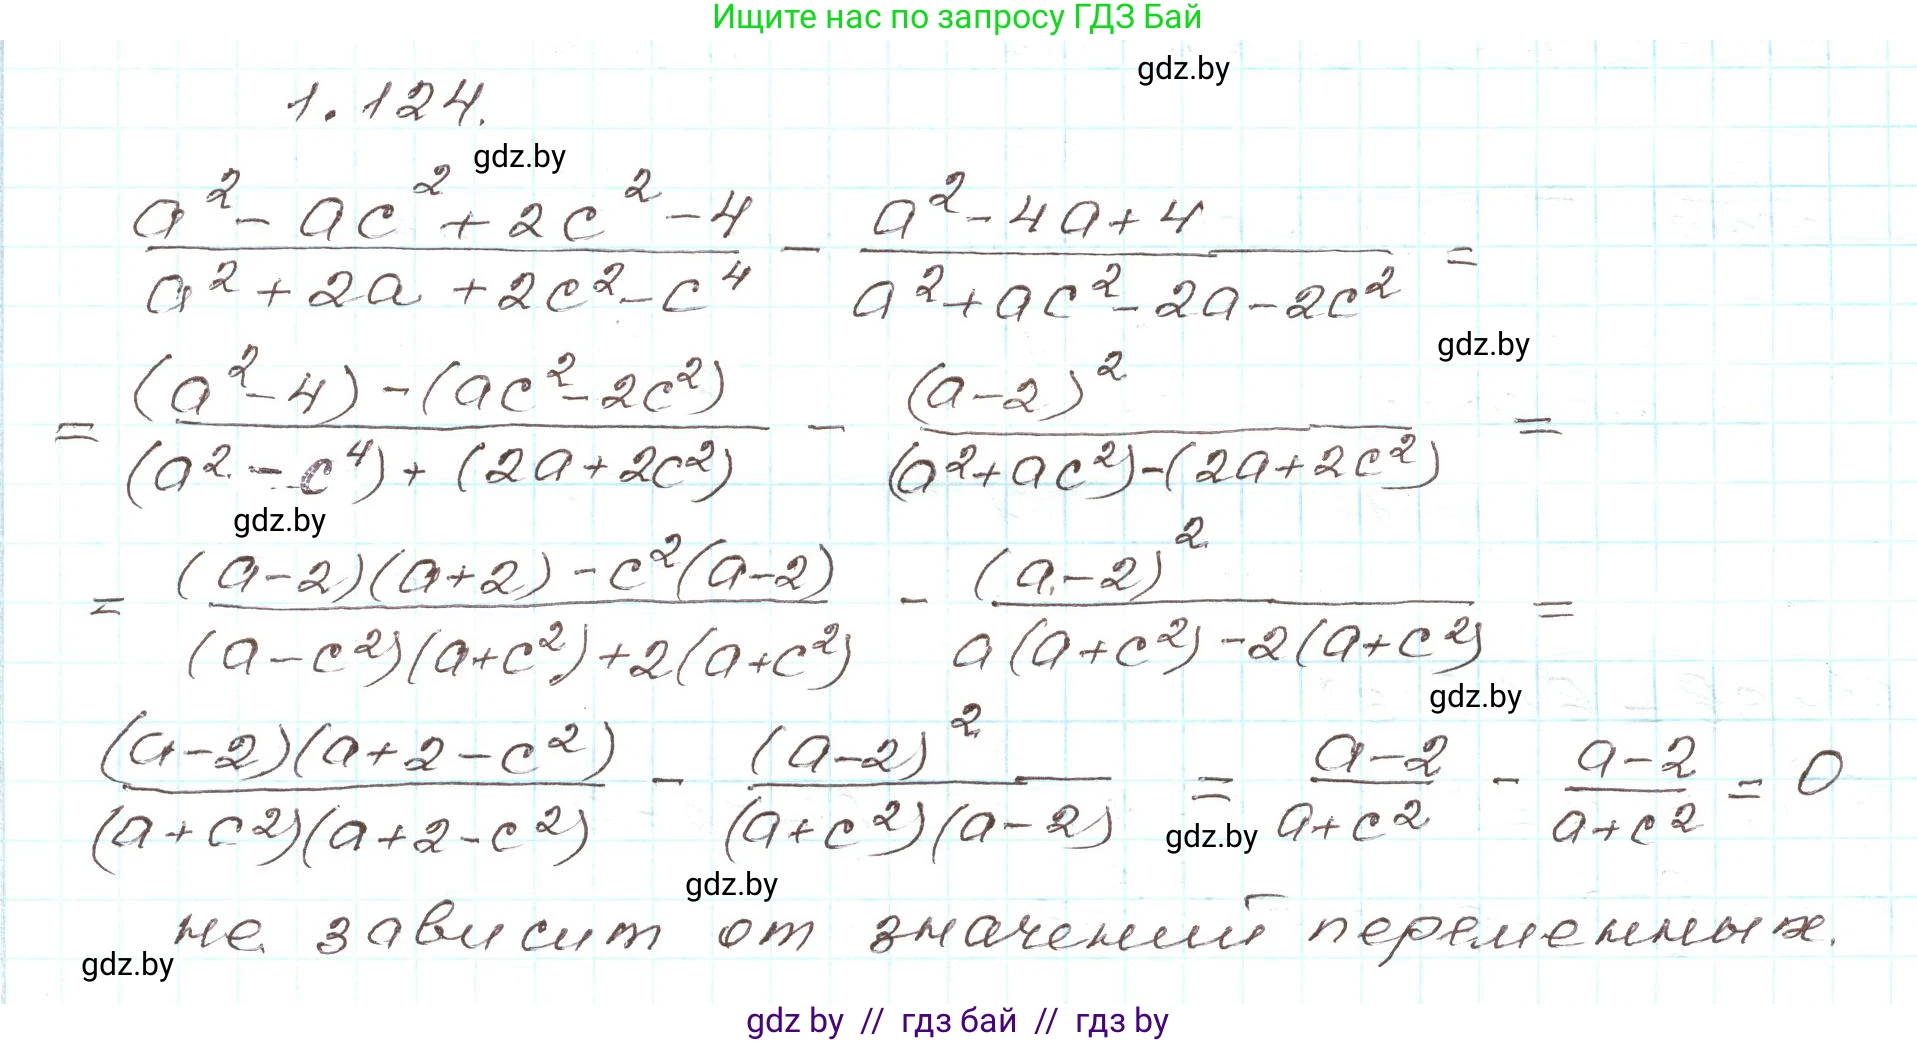 Ищите нас по запросу ГДЗ Бай
gdz.by
1.124.
gdz.by
a² - ac² + 2c² - 4 / a² + 2a + 2c² - c⁴ - a² - 4a + 4 / a² + ac² - 2a - 2c² =
gdz.by
= (a² - 4) - (ac² - 2c²) / (a² - c⁴) + (2a + 2c²) - (a - 2)² / (a² + ac²) - (2a + 2c²) =
gdz.by
= (a - 2)(a + 2) - c²(a - 2) / (a - c²)(a + c²) + 2(a + c²) - (a - 2)² / a(a + c²) - 2(a + c²) =
gdz.by
(a - 2)(a + 2 - c²) / (a + c²)(a + 2 - c²) - (a - 2)² / (a + c²)(a - 2) = a - 2 / a + c² - a - 2 / a + c² = 0
gdz.by
gdz.by
не зависит от значений переменных.
gdz.by
gdz by // гдз бай // гдз by